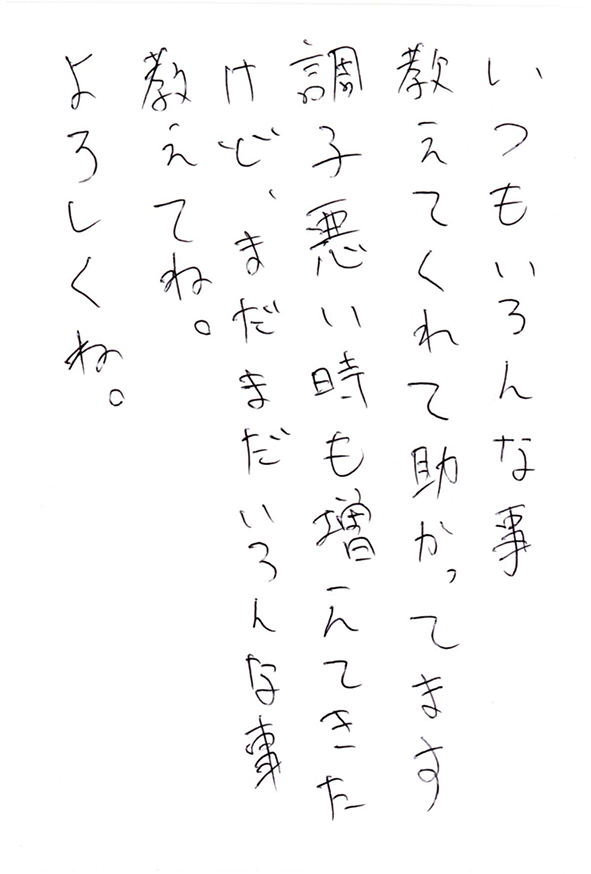 いつもいろんな事
教えてくれて助かってます
調子悪い時も増えてきた
けど、まだまだいろんな事
教えてね。
よろしくね。